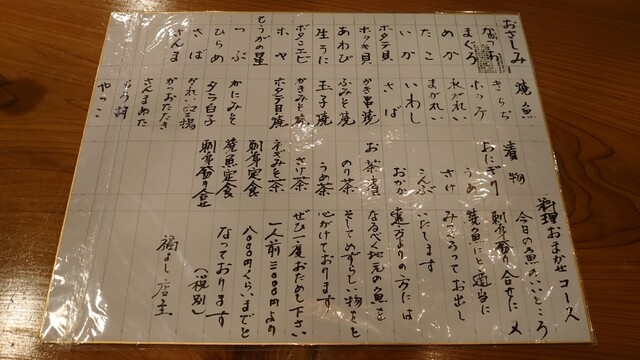 おさしみ
かつお
まぐろ
めか
たこ
いか
ボタテ貝
ホッキ貝
あわび
生うに
ボタンエビ
ホヤ
もうかの星
つぶ
ひらめ
さば
さんま
焼魚
きちぢ
ホッケ
水がれい
まがれい
いわし
さば
かき串焼
ふみそ焼
玉子焼
かきみそ焼
ホタテ貝焼
かにみそ
タラ白子
かれい空揚
かつおたたき
さんまぬた
もう詞
やっこ
漬物
おにぎり
うめ
さけ
こんぶ
おかか
お茶漬
のり茶
うめ茶
さけ茶
ネギみそ茶
刺身定食
焼魚定食
刺身盛り合せ
料理おまかせコース
今日の魚のいいところ
刺身盛り合せに 又
焼魚にと適当に
みつくろってお出し
いたします
遠方よりの方には
なるべく地元の魚を
そしてめずらしい物をと
心がけております
ぜひ一度おためし下さい
一人前三〇〇〇円より
八〇〇〇円くらいまでと
なっております
(税別)
福よし 店主